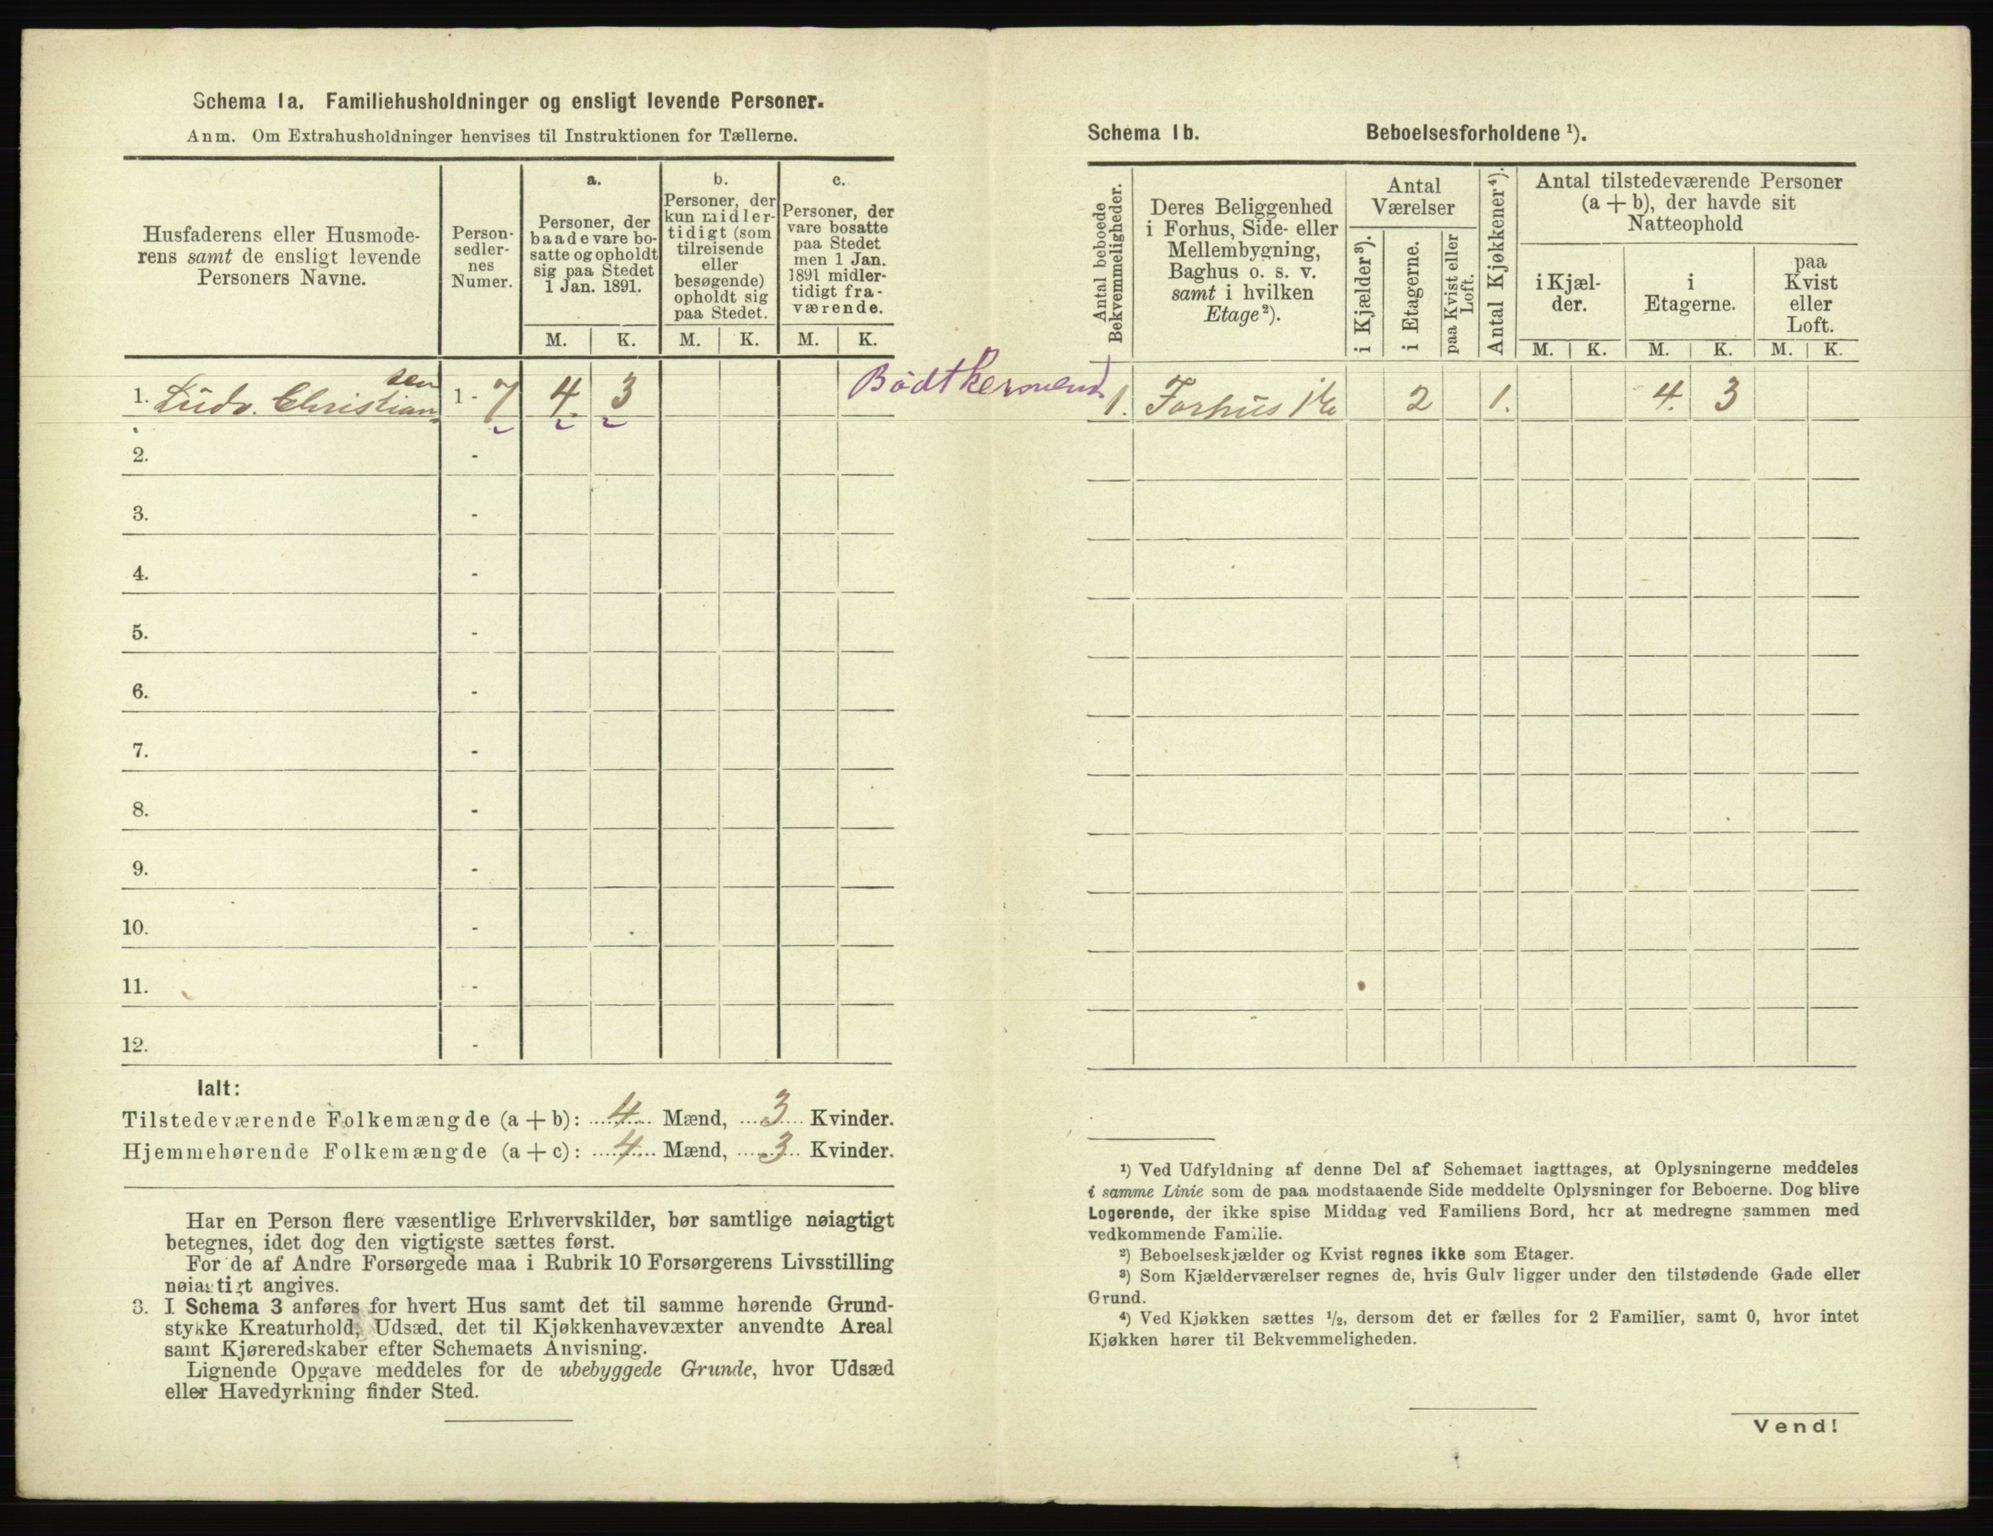 Schema 1a. Familiehusholdninger og ensligt levende Personer.
Anm. Om Extrahusholdninger henvises til Instruktionen for Tællerne.
Husfaderens eller Husmode-
rens samt de ensligt levende
Personers Navne.
Person-
sedler-
nes
Numer.
a.
Personer, der
baade vare bo-
satte og opholdt
sig paa Stedet
1 Jan. 1891.
b.
Personer, der
kun midler-
tidigt (som
tilreisende
eller
besøgende)
opholdt sig
paa Stedet.
c.
Personer, der
vare bosatte
paa Stedet
men 1 Jan.
1891 midler-
tidigt fra-
værende.
M. K. M. K. M. K.
1. Ludv. Christian sen 1 - 7 4. 3 Bödtkersmend
2. -
3. -
4. -
5. -
6. -
7. -
8. -
9. -
10. -
11. -
12. -
Ialt:
Tilstedeværende Folkemængde (a + b): 4 Mænd, 3 Kvinder.
Hjemmehørende Folkemængde (a + c): 4 Mænd, 3 Kvinder.
Har en Person flere væsentlige Erhvervskilder, bør samtlige nøiagtigt
betegnes, idet dog den vigtigste sættes først.
For de af Andre Forsørgede maa i Rubrik 10 Forsørgerens Livsstilling
nøiagtigt angives.
3. I Schema 3 anføres for hvert Hus samt det til samme hørende Grund-
stykke Kreaturhold, Udsæd, det til Kjøkkenhavevæxter anvendte Areal
samt Kjøreredskaber efter Schemaets Anvisning.
Lignende Opgave meddeles for de ubebyggede Grunde, hvor Udsæd
eller Havedyrkning finder Sted.
Schema 1b. Beboelsesforholdene ¹).
Antal beboede
Bekvemmeligheder.
Deres Beliggenhed
i Forhus, Side- eller
Mellembygning,
Baghus o. s. v.
samt i hvilken
Etage²).
Antal
Værelser
i Kjælder³).
i Etagerne.
paa Kvist eller
Loft.
Antal Kjøkkener⁴).
Antal tilstedeværende Personer
(a + b), der havde sit
Natteophold
i Kjæl-
der.
i
Etagerne.
paa
Kvist
eller
Loft.
M. K. M. K. M. K.
1. Forhus 1ste 2 1. 4. 3
¹) Ved Udfyldning af denne Del af Schemaet iagttages, at Oplysningerne meddeles
i samme Linie som de paa modstaaende Side meddelte Oplysninger for Beboerne. Dog blive
Logerende, der ikke spise Middag ved Familiens Bord, her at medregne sammen med
vedkommende Familie.
²) Beboelseskjælder og Kvist regnes ikke som Etager.
³) Som Kjælderværelser regnes de, hvis Gulv ligger under den tilstødende Gade eller
Grund.
⁴) Ved Kjøkken sættes ½, dersom det er fælles for 2 Familier, samt 0, hvor intet
Kjøkken hører til Bekvemmeligheden.
Vend!